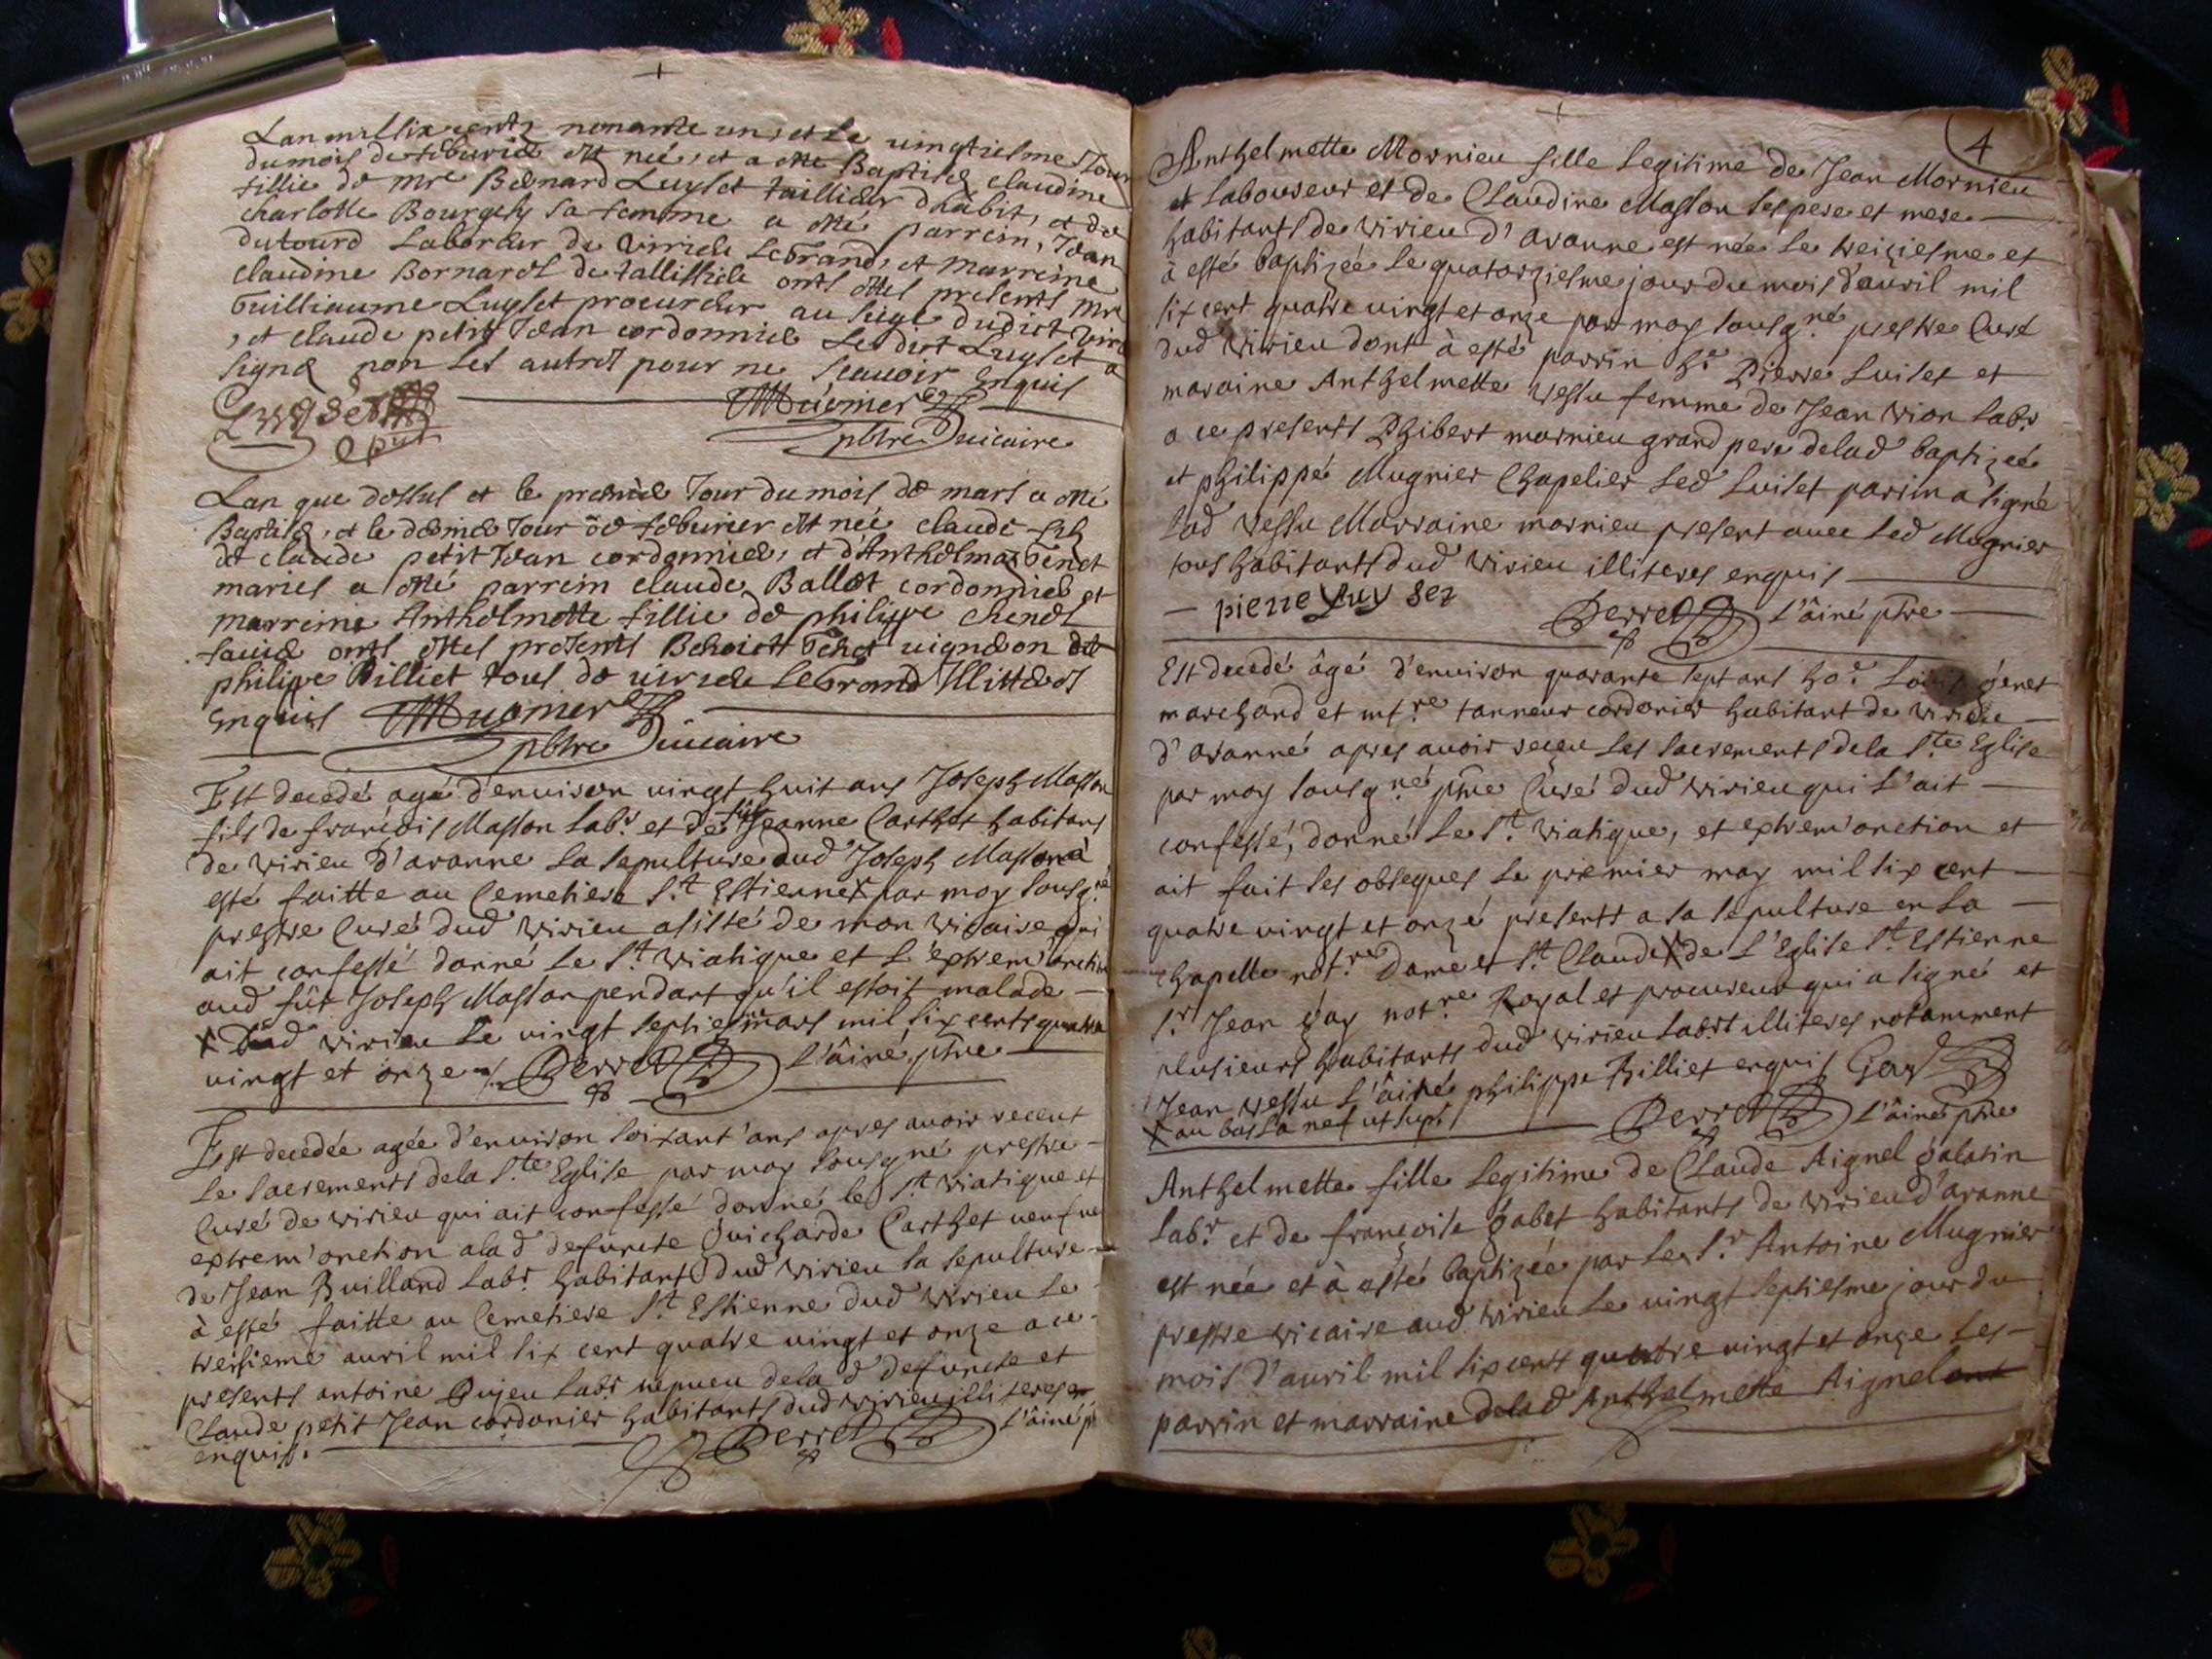 Lan mil six cents nonante un, et le vingtiesme Jour
du mois de feburier est neé, et a esté Baptisé claudine
fillie de Mre Bernard Luyset taillieur d'habit, et de
charlotte Bourgely sa femme a esté parrein, Jean
dutourd Laboreur de virieu Le Grand, et Marreine
claudine Bornard de tallissieu onts estes presents Mre
Guilliaume Luyset procureur au siege dudict
, et claude petit Jean cordonnier Le dict Luyset a
signé non Les autres pour ne scauoir enquis
Luyset Mugnier
pbtre vicaire
Lan que dessus et le premier Jour du mois de mars a esté
Baptisé, et le dernier Jour de feburier est neé claude fils
de claude petit Jean cordonnier, et d'Anthelmaz Genet
mariés a esté parrein claude Ballet cordonnier et
marreine Anthelmette fillie de philippe chenet
onts estes presents Benoict Genet vigneron et
philipe Billiet tous de virieu Le Grand Illitteres
Enquis Mugnier
pbtre Vicaire
Est decedé agé d'enuiron vingt huit ans Joseph Masson
fils de françois Masson Labr. et de fût Jeanne Carthet habitans
de virieu d'aranne La sepulture dud Joseph Masson à
esté faitte au Cemetiere St. Estienne X par moy sousg.né
prestre Curé dud virieu assisté de mon vicaire qui
ait confessé donné Le St. viatique et L'extrem'onction
aud fût Joseph Masson pendant qu'il estoit malade
X dud virieu Le vingt septie.me mars mil six cents quatre
vingt et onze Perret L'ainé, ptre
Est decedée agée d'enuiron soixant'ans apres auoir receut
Le sacrements dela S.te Eglise par moy sousg né prestre
Curé de virieu qui ait confessé donné le St. viatique et
extrem'onction a lad defuncte Guicharde Carthet veufue
de Jean Builland Labr. habitants dud virieu sa sepulture
à esté faitte au Cemetiere St. Estienne dud virieu Le
treisieme auril mil six cent quatre vingt et onze a ce
presents antoine Dujeu Labr. nepueu dela d defuncte et
Claude petit Jean cordonier habitants dud virieu illiteres
enquis. Perret L'ainé
4
Anthelmette Mornieu fille Legitime de Jean Mornieu
et Laboureur et de Claudine Masson ses pere et mere
habitants de virieu d'aranne est née Le treiziesme et
à esté baptizée Le quatorziesme jour du mois d'auril mil
six cent quatre vingt et onze par moy sousg.né prestre Curé
dud virieu dont à esté parrin h.e Pierre Luiset et
maraine Anthelmette vessu femme de Jean vion Labr.
a ce presents Phibert mornieu grand pere delad baptizeé
et philippé Mugnier Chapelier Led Luiset parrin a signé
Lad vessu Marraine mornieu present auec Led Mugnier
tous habitants dud virieu illiteres enquis
pierre Luyset Perret L'ainé ptre
Est decedé âgé d'enuiron quarante sept ans ho.e genet
marchand et mt.re tanneur cordonier habitant de virieu
d'aranne apres auoir receu Les sacrements dela S.te Eglise
par moy sousg.né ptre Curé dud virieu qui L'ait
confessé, donné Le St. viatique, et extrem'onction et
ait fait ses obseques Le premier may mil six cent
quatre vingt et onzé presents a sa sepulture en La
chapelle not.re Dame et St. Claude X de L'Eglise St. Estienne
S.r Jean gay not.re Royal et procureur qui a signé et
plusieurs habitants dud virieu Labrs. illiteres notamment
Jean vessu L'ainé philippe Billiet enquis Gay
X au bas La nef ut sup. Perret L'ainé ptre
Anthelmette fille Legitime de Claude Aignel galatin
Labr. et de françoise gabet habitants de virieu d'aranne
est née et à esté baptizée par Le S.r Antoine Mugnier
prestre vicaire aud virieu Le vingt septiesme jour du
mois d'auril mil six cent quatre vingt et onze Les
parrin et marraine delad Anthelmette Aignel ont